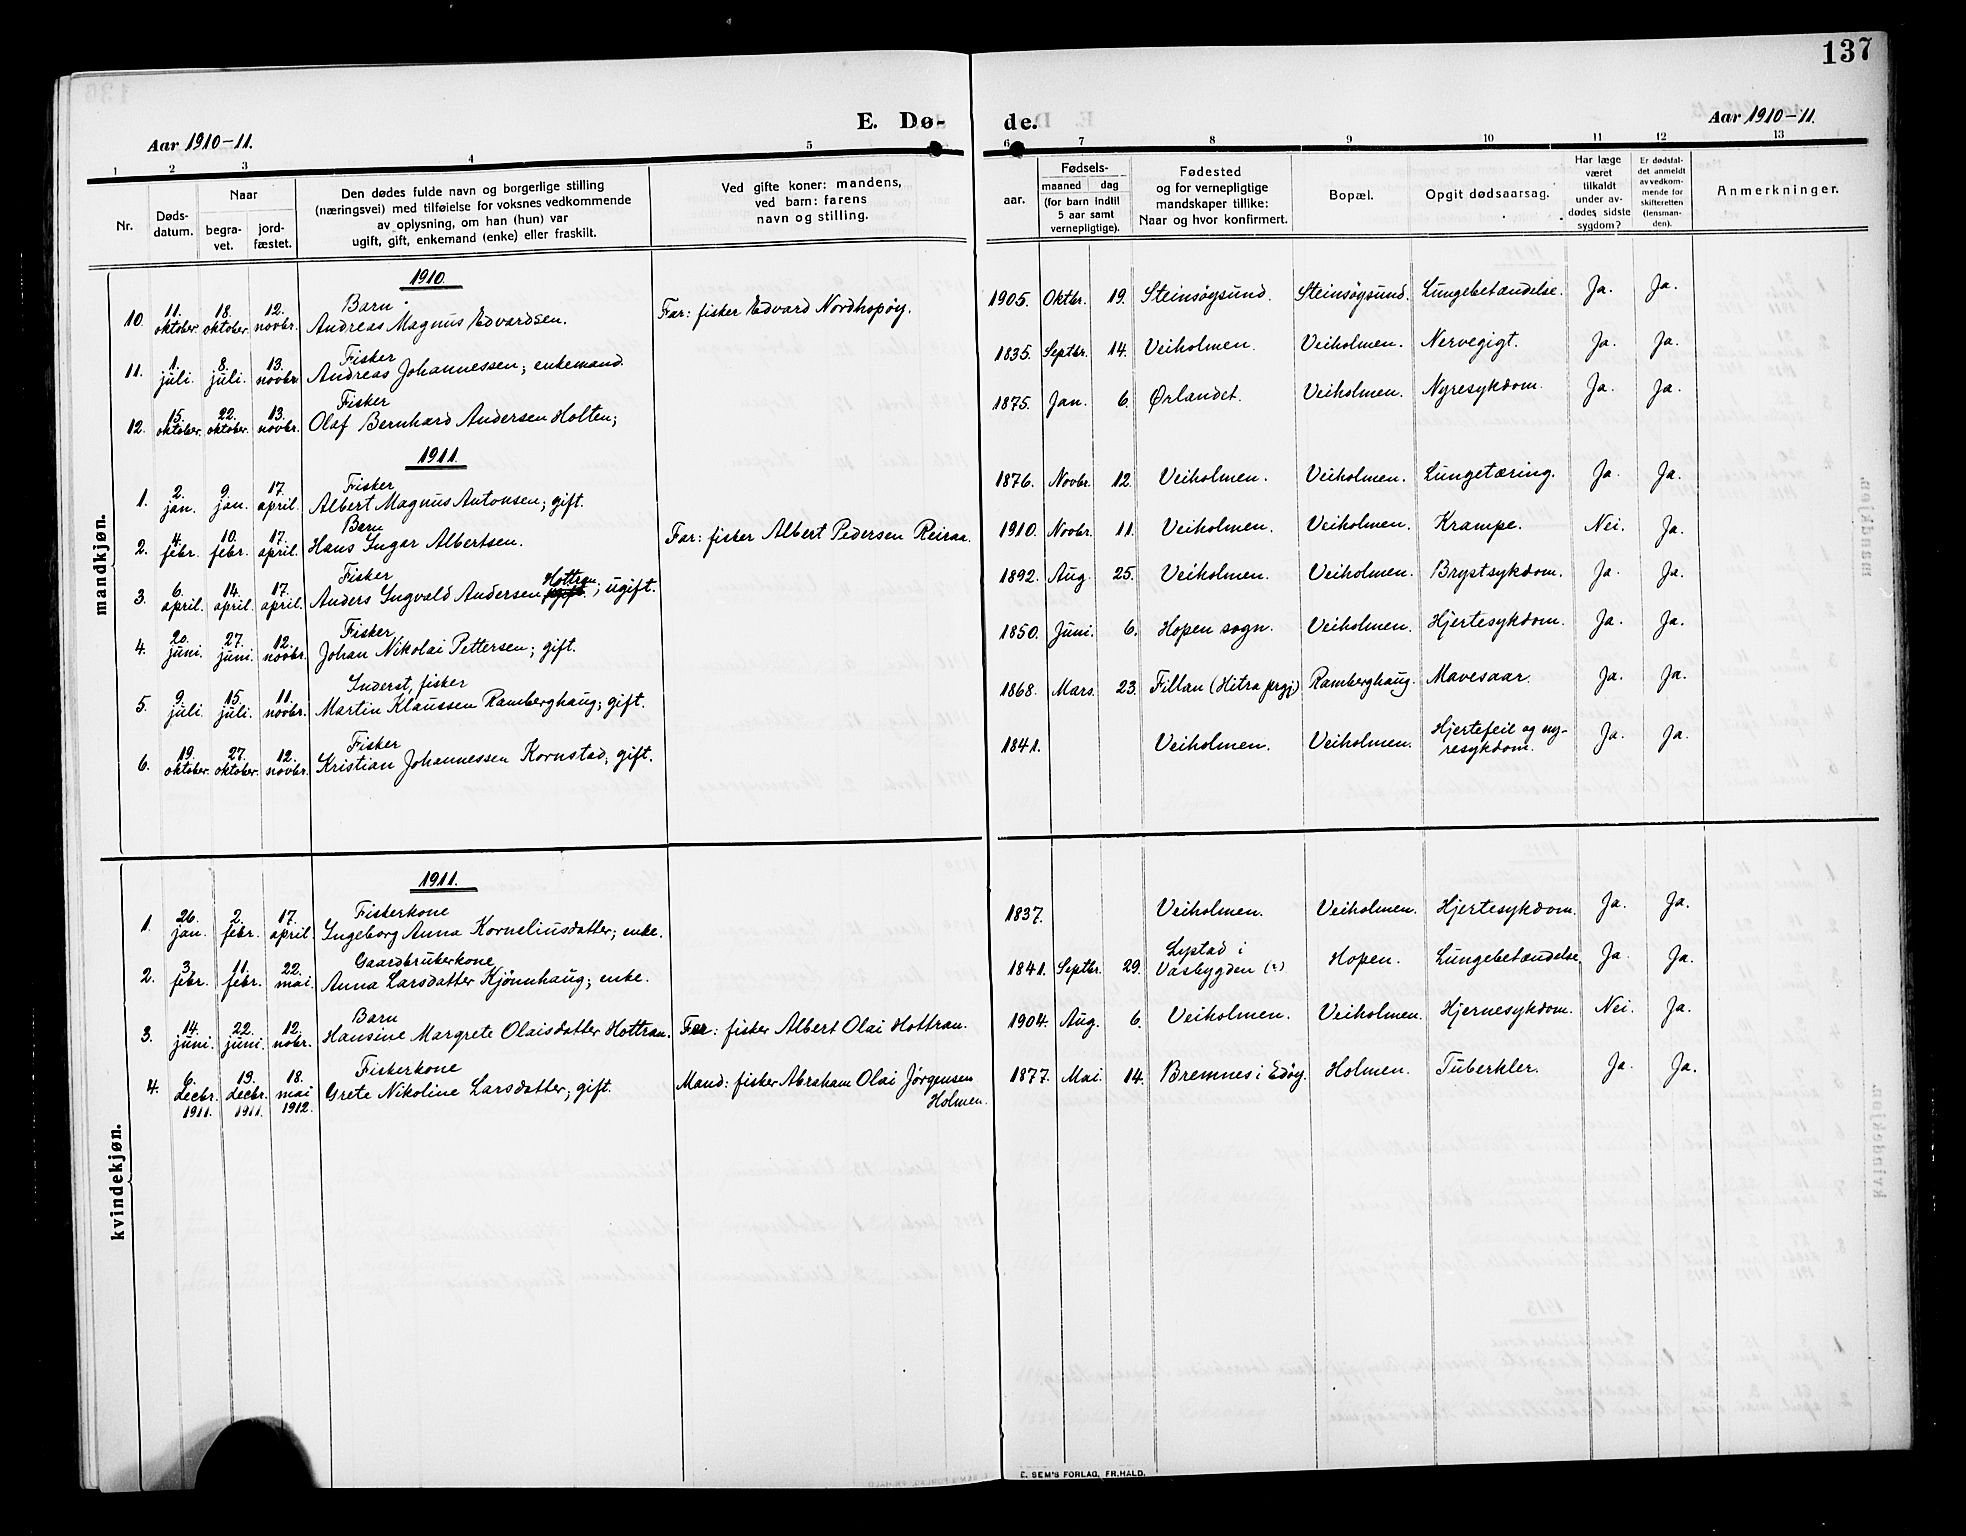 137
Aar 1910-11.
E. Dø-
de.
Aar 1910-11.
1 2 3 4 5 6 7 8 9 10 11 12 13
Nr.
Døds-
datum.
Naar
begra-
vet.
jord-
fæstet.
Den dødes fulde navn og borgerlige stilling
(næringsvei) med tilføielse for voksnes vedkommende
av oplysning, om han (hun) var
ugift, gift, enkemand (enke) eller fraskilt.
Ved gifte koner: mandens,
ved barn: farens
navn og stilling.
aar.
Fødsels-
maaned dag
(for barn indtil
5 aar samt
vernepligtige).
Fødested
og for vernepligtige
mandskaper tillike:
Naar og hvor konfirmert.
Bopæl.
Opgit dødsaarsag.
Har læge
været
tilkaldt
under av-
dødes sidste
sygdom?
Er dødsfal-
det anmeldt
av vedkom-
mende for
skifteretten
(lensman-
den).
Anmerkninger.
mandkjøn.
1910.
10. 11. oktober. 18. oktober. 12. novbr. Barn
Andreas Magnus Edvardsen. Far: fisker Edvard Nordhopøy. 1905. Oktbr. 19. Steinsøysund. Steinsøysund. Lungebetændelse. Ja. Ja.
11. 1. juli. 8. juli. 13. novbr. Fisker
Andreas Johannessen; enkemand. 1835. Septbr. 14. Veiholmen. Veiholmen. Nervegigt. Ja. Ja.
12. 15. oktober. 22. oktober. 13. novbr. Fisker
Olaf Bernhard Andersen Holten; 1875. Jan. 6. Ørlandet. Veiholmen. Nyresykdom. Ja. Ja.
1911.
1. 2. jan. 9. jan. 17. april. Fisker
Albert Magnus Antonsen; gift. 1876. Novbr. 12. Veiholmen. Veiholmen. Lungetæring. Ja. Ja.
2. 4. febr. 10. febr. 17. april. Barn
Hans Ingar Albertsen. Far: fisker Albert Pedersen Reiraa. 1910. Novbr. 11. Veiholmen. Veiholmen. Krampe. Nei. Ja.
3. 6. april. 14. april. 17. april. Fisker
Anders Ingvald Andersen Hottran; ugift. 1892. Aug. 25. Veiholmen. Veiholmen. Brystsykdom. Ja. Ja.
4. 20. juni. 27. juni. 12. novbr. Fisker
Johan Nikolai Pettersen; gift. 1850. Juni. 6. Hopen sogn. Veiholmen. Hjertesykdom. Ja. Ja.
5. 9. juli. 15. juli. 11. novbr. Inderst, fisker
Martin Klaussen Ramberghaug; gift. 1868. Mars. 23. Fillan (Hitra prgj) Ramberghaug. Mavesaar. Ja. Ja.
6. 19. oktober. 27. oktober. 12. novbr. Fisker
Kristian Johannessen Kornstad; gift. 1841. Veiholmen. Veiholmen. Hjertefeil og ny-
resykdom. Ja. Ja.
kvindekjøn.
1911.
1. 26. jan. 2. febr. 17. april. Fiskerkone
Ingeborg Anna Korneliusdatter; enke. 1837. Veiholmen. Veiholmen. Hjertesykdom. Ja. Ja.
2. 3. febr. 11. febr. 22. mai. Gaardbrukerkone
Anna Larsdatter Kjønnhaug; enke. 1841. Septbr. 29. Lystad i
Vasbygden (?) Hopen. Lungebetændelse. Ja. Ja.
3. 14. juni. 22. juni. 12. nobr. Barn
Hansine Margrete Olaisdatter Hottran. Far: fisker Albert Olai Hottran. 1904. Aug. 6. Veiholmen. Veiholmen. Hjernesykdom. Nei. Ja.
4. 6. decbr. 1911. 19. decbr. 1911. 18. mai 1912. Fiskerkone
Grete Nikoline Larsdatter; gift. Mand: fisker Abraham Olai Jørgensen
Holmen. 1877. Mai. 14. Bremnes i Edøy. Holmen. Tuberkler. Ja. Ja.
E. SEM'S FORLAG, FR.HALD.